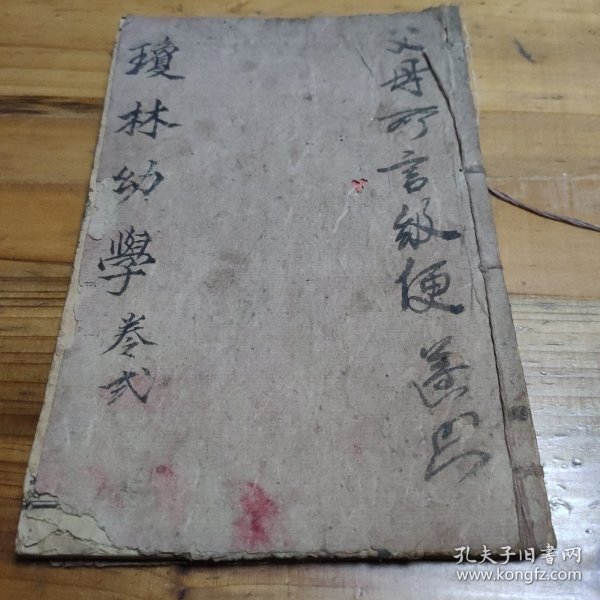 父母所言級便
瓊林幼學 卷弍
孔夫子旧书网
www.kongfz.com